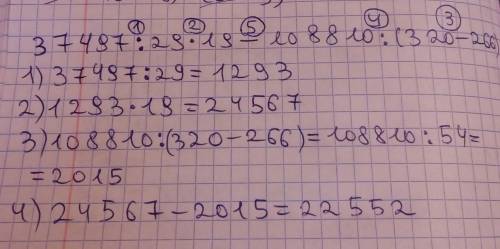 ① ② ⑤ ④ ③
37497:29·19−108810:(320−266)
1) 37497:29=1293
2) 1293·19=24567
3) 108810:(320−266)=108810:54=
=2015
4) 24567−2015=22552